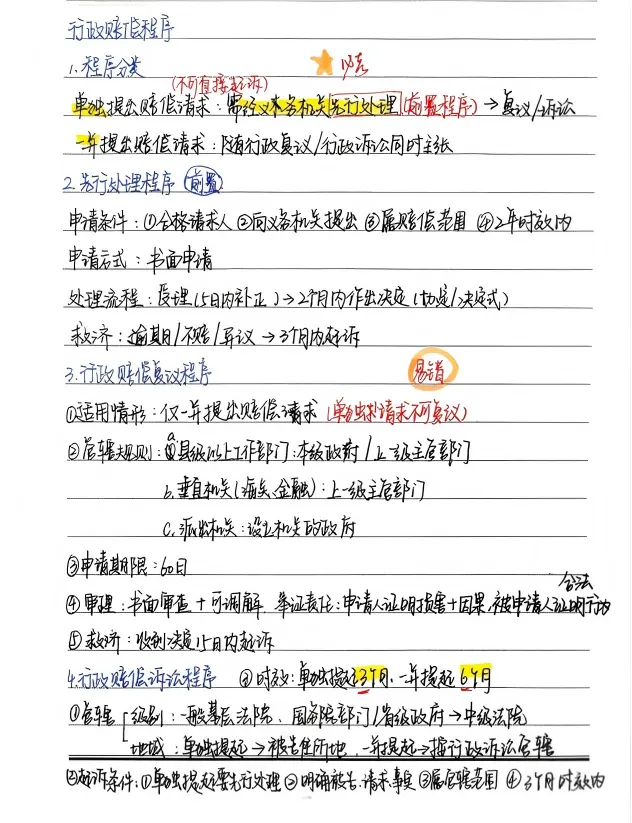 行政赔偿程序
1.程序分类 必考
(不可直接起诉)
单独提出赔偿请求：需经义务机关先行处理(前置程序)→复议/诉讼
一并提出赔偿请求：随行政复议/行政诉讼同时主张
2.先行处理程序 前置
申请条件：①合格请求人 ②向义务机关提出 ③属赔偿范围 ④2年时效内
申请方式：书面申请
处理流程：受理(5日内补正)→2个月内作出决定(协定/决定式)
救济：逾期/不赔/异议→3个月内起诉
3.行政赔偿复议程序 易错
①适用情形：仅一并提出赔偿请求(单独求请求不可复议)
②管辖规则：a县级以上工作部门：本级政府/上一级主管部门
b.垂直机关(海关、金融)：上一级主管部门
c.派出机关：设立机关的政府
③申请期限：60日
④审理：书面审查+可调解 举证责任：申请人证明损害+因果，被申请人证明行为合法
⑤救济：收到决定15日内起诉
4.行政赔偿诉讼程序 ③时效：单独提起3个月、一并提起6个月
①管辖 级别：一般基层法院、国务院部门/省级政府→中级法院
地域：单独提起→被告住所地、一并提起→按行政诉讼管辖
②起诉条件：①单独提起要先行处理②明确被告、请求、事实③属管辖范围④3个月时效内